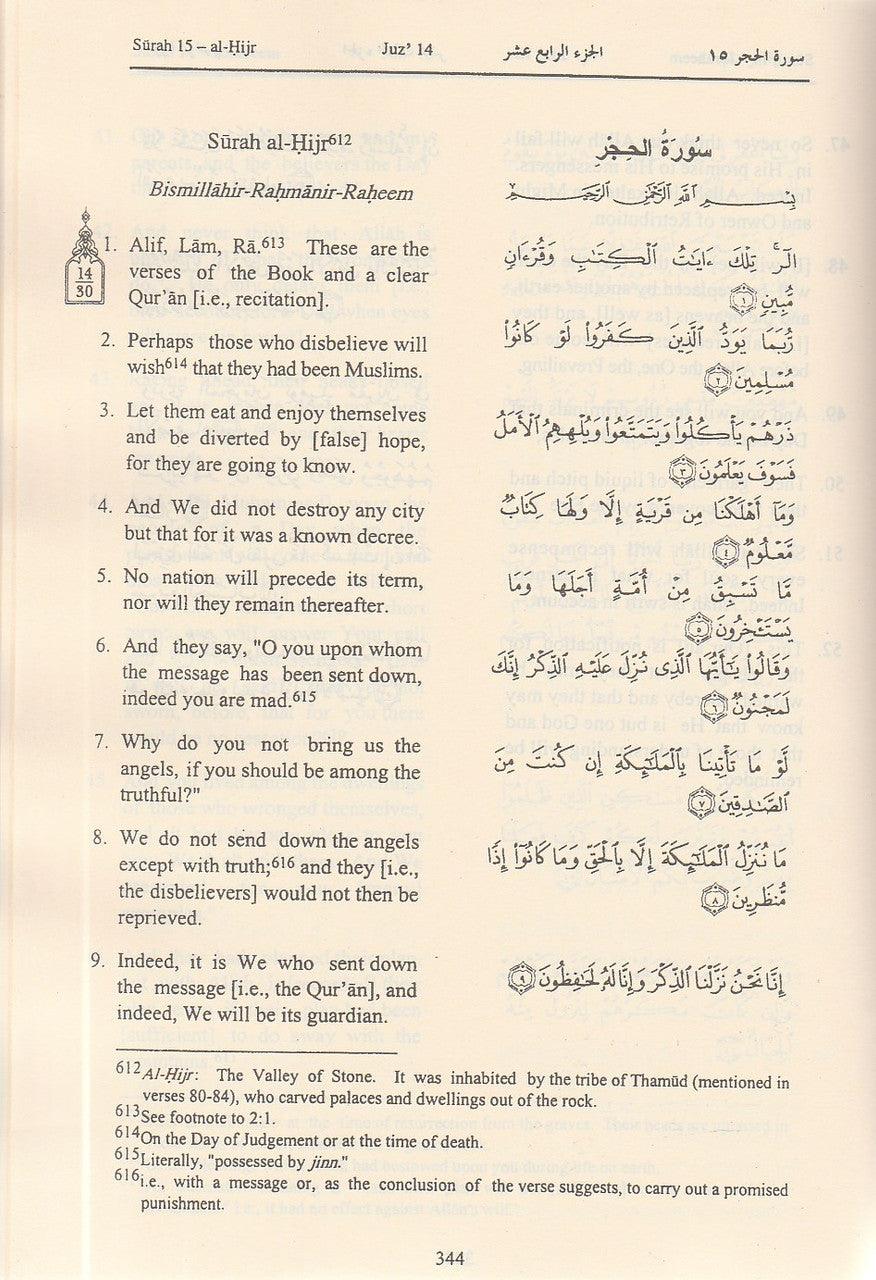 Sūrah 15 – al-Ḥijr Juz' 14 الجزء الرابع عشر سورة الحجر ١٥
Sūrah al-Ḥijr612
Bismillāhir-Raḥmānir-Raḥeem
14
30
1. Alif, Lām, Rā.613 These are the
verses of the Book and a clear
Qur'ān [i.e., recitation].
2. Perhaps those who disbelieve will
wish614 that they had been Muslims.
3. Let them eat and enjoy themselves
and be diverted by [false] hope,
for they are going to know.
4. And We did not destroy any city
but that for it was a known decree.
5. No nation will precede its term,
nor will they remain thereafter.
6. And they say, "O you upon whom
the message has been sent down,
indeed you are mad.615
7. Why do you not bring us the
angels, if you should be among the
truthful?"
8. We do not send down the angels
except with truth;616 and they [i.e.,
the disbelievers] would not then be
reprieved.
9. Indeed, it is We who sent down
the message [i.e., the Qur'ān], and
indeed, We will be its guardian.
سُورَةُ الحِجْرِ
بِسْمِ اللَّهِ الرَّحْمَٰنِ الرَّحِيمِ
الٓرۚ تِلْكَ ءَايَٰتُ ٱلْكِتَٰبِ وَقُرْءَانٍ
مُّبِينٍ ١
رُّبَمَا يَوَدُّ ٱلَّذِينَ كَفَرُوا۟ لَوْ كَانُوا۟
مُسْلِمِينَ ٢
ذَرْهُمْ يَأْكُلُوا۟ وَيَتَمَتَّعُوا۟ وَيُلْهِهِمُ ٱلْأَمَلُ
فَسَوْفَ يَعْلَمُونَ ٣
وَمَآ أَهْلَكْنَا مِن قَرْيَةٍ إِلَّا وَلَهَا كِتَابٌ
مَّعْلُومٌ ٤
مَّا تَسْبِقُ مِنْ أُمَّةٍ أَجَلَهَا وَمَا
يَسْتَـْٔخِرُونَ ٥
وَقَالُوا۟ يَٰٓأَيُّهَا ٱلَّذِى نُزِّلَ عَلَيْهِ ٱلذِّكْرُ إِنَّكَ
لَمَجْنُونٌ ٦
لَّوْ مَا تَأْتِينَا بِٱلْمَلَٰٓئِكَةِ إِن كُنتَ مِنَ
ٱلصَّٰدِقِينَ ٧
مَا نُنَزِّلُ ٱلْمَلَٰٓئِكَةَ إِلَّا بِٱلْحَقِّ وَمَا كَانُوٓا۟ إِذًا
مُّنظَرِينَ ٨
إِنَّا نَحْنُ نَزَّلْنَا ٱلذِّكْرَ وَإِنَّا لَهُۥ لَحَٰفِظُونَ ٩
612Al-Ḥijr: The Valley of Stone. It was inhabited by the tribe of Thamūd (mentioned in
verses 80-84), who carved palaces and dwellings out of the rock.
613See footnote to 2:1.
614On the Day of Judgement or at the time of death.
615Literally, "possessed by jinn."
616i.e., with a message or, as the conclusion of the verse suggests, to carry out a promised
punishment.
344